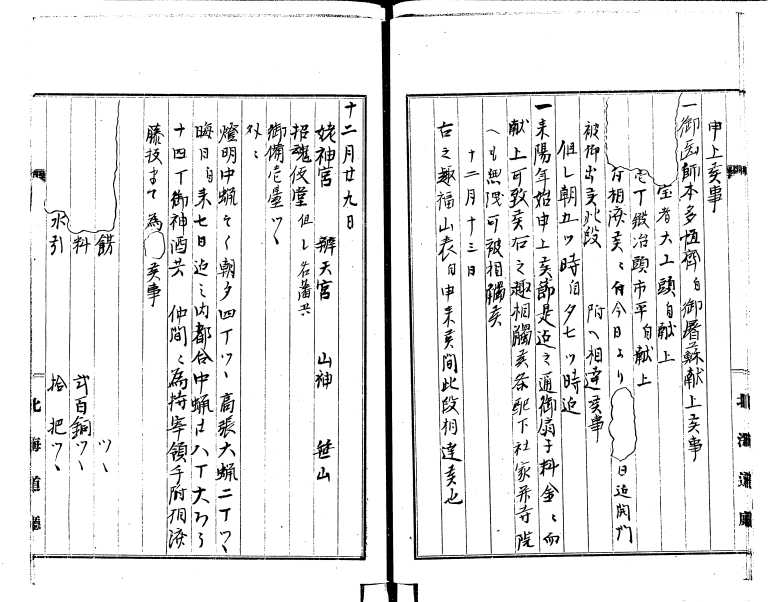 申上候事
一御医師本多恆齊ゟ御屠蘇献上候事
宝者大工頭ゟ献上
壱丁鍛冶頭市平ゟ献上
付相済候ニ付今日より 日迄開門
被仰出候此段 附へ相達候事
但し朝五ツ時ゟ夕七ツ時迄
一来陽年始申上候節是迄之通御扇子料金ニ而
献上可致候右之趣相觸候条配下社家并寺院
へも無洩可被相觸候
十二月十三日
右之趣福山表ゟ申来候間此段相達候也
北海道廳
十二月廿九日
姥神宮 辨天宮 山神 笹山
招魂仮堂 但し名藩共
御備壱疊ツヽ
外ニ
燈明中蝋そく朝夕四丁ツヽ 高張大蝋二丁ツヽ
晦日ゟ来七日迄之内都合中蝋百八丁大ろう
十四丁御神酒共 仲間ニ為持宰領手附相済
藤枝まて為 候事
餝 ツヽ
料 弐百銅ツヽ
水引 拾把ツヽ
北海道廳